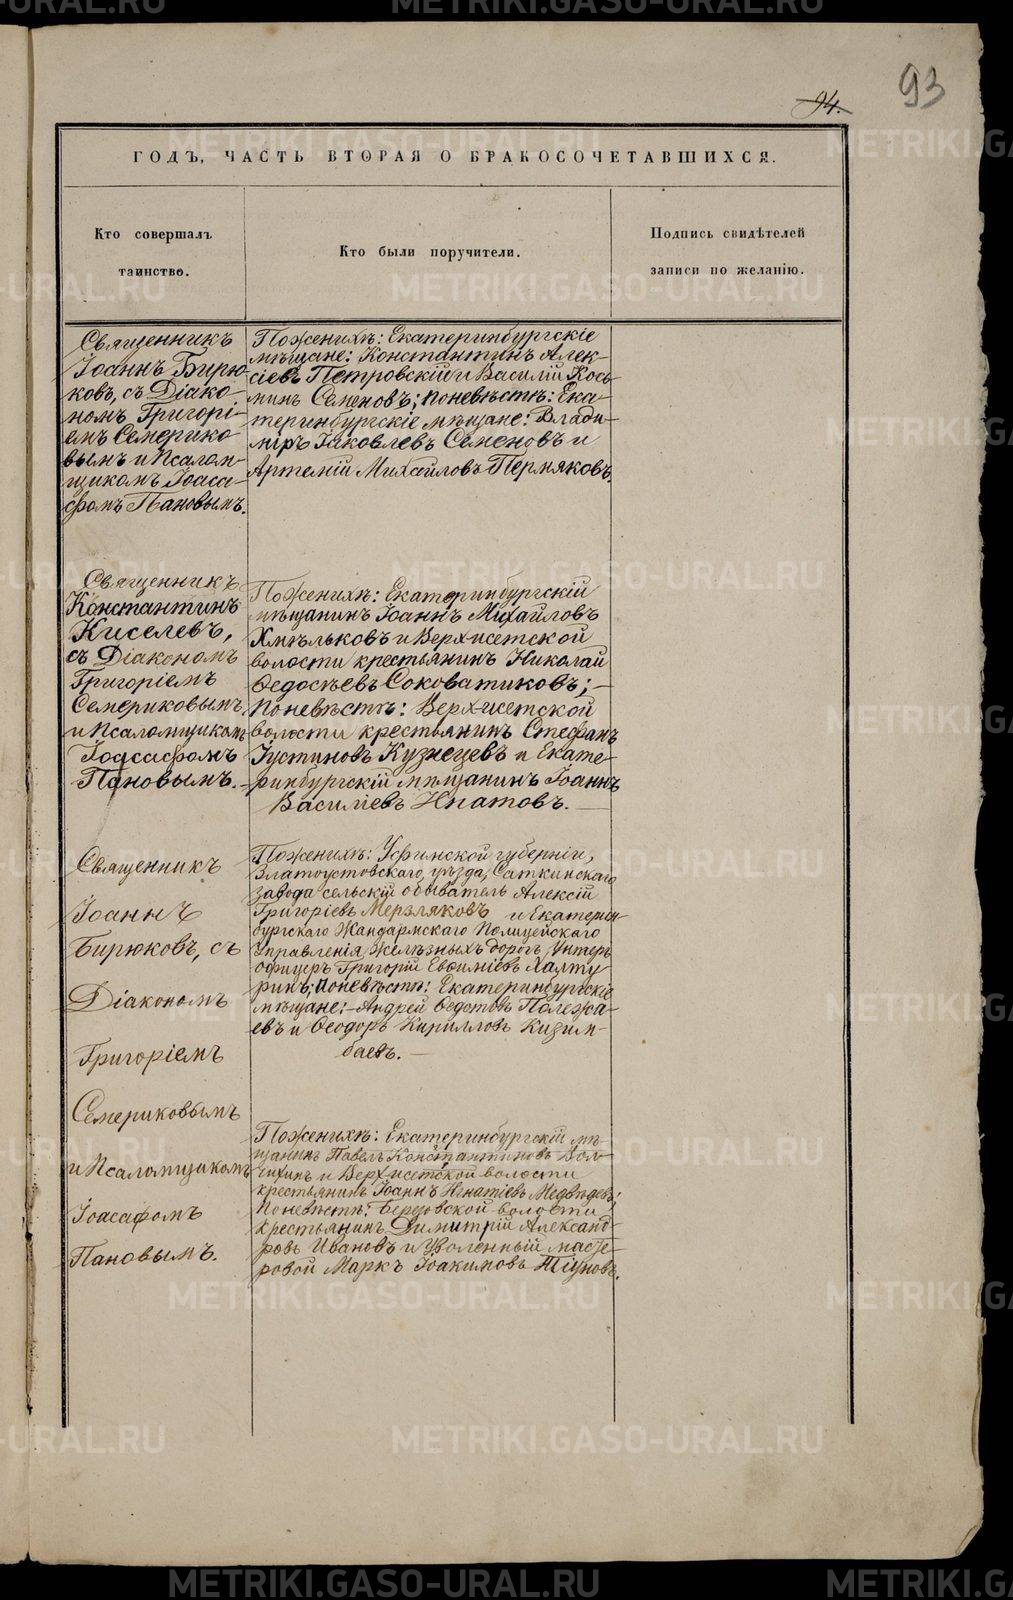 93
94.
ГОДЪ, ЧАСТЬ ВТОРАЯ О БРАКОСОЧЕТАВШИХСЯ.
Кто совершалъ
таинство.
Кто были поручители.
Подпись свидѣтелей
записи по желанію.
Священникъ
Іоаннъ Бирю-
ковъ, съ Діако-
номъ Григорі-
емъ Семерико-
вымъ и Псалом-
щикомъ Іоаса-
фомъ Пановымъ.
По женихѣ: Екатеринбургскіе
мѣщане: Константинъ Алек-
сіевъ Петровскій и Василій Кось-
минъ Семеновъ; по невѣстѣ: Ека-
теринбургскіе мѣщане: Влади-
міръ Іаковлевъ Семеновъ и
Артемій Михайловъ Пермяковъ.
Священникъ
Константинъ
Киселевъ,
съ Діакономъ
Григоріемъ
Семериковымъ
и Псаломщикомъ
Іоасафомъ
Пановымъ.
По женихѣ: Екатеринбургскій
мѣщанинъ Іоаннъ Михайловъ
Хмѣльковъ и Верхисетской
волости крестьянинъ Николай
Ѳедосѣевъ Соковатиковъ; —
по невѣстѣ: Верхисетской
волости крестьянинъ Стефанъ
Іустиновъ Кузнецевъ и Екате-
ринбургскій мѣщанинъ Іоаннъ
Василіевъ Ипатовъ. —
Священникъ
Іоаннъ
Бирюковъ, съ
Діакономъ
Григоріемъ
Семериковымъ
и Псаломщикомъ
Іоасафомъ
Пановымъ.
По женихѣ: Уфимской губерніи,
Златоустовскаго уѣзда, Саткинскаго
завода сельскій обыватель Алексій
Григоріевъ Мерзляковъ и Екатерин-
бургскаго Жандармскаго Полицейскаго
Управленія Желѣзныхъ дорогъ, Унтеръ
офицеръ Григорій Евѳиміевъ Халту-
ринъ; по невѣстѣ: Екатеринбургскіе
мѣщане: — Андрей Ѳедотовъ Полежа-
евъ и Ѳеодоръ Кирилловъ Кизим-
баевъ. —
По женихѣ: Екатеринбургскій мѣ-
щанинъ Павелъ Константиновъ Вол-
чихинъ и Верхисетской волости
крестьянинъ Іоаннъ Игнатіевъ Медвѣдевъ;
по невѣстѣ: Березовской волости
крестьянинъ Димитрій Александ-
ровъ Ивановъ и Уволенный масте-
ровой Маркъ Іоакимовъ Тіуновъ.
METRIKI.GASO-URAL.RU